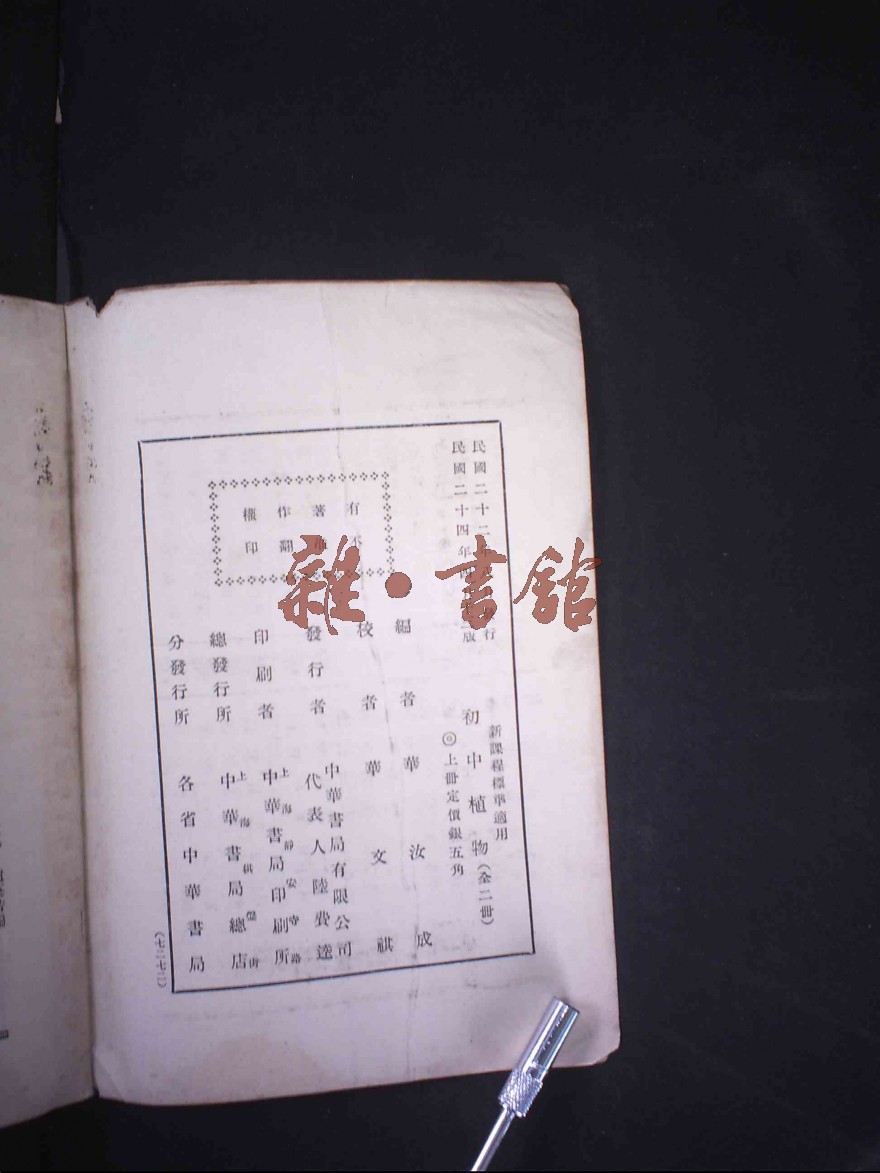 民國二十二年 行
民國二十四年 版
新課程標準適用
初中植物(全二冊)
◎上冊定價銀五角
有著作權
不 翻印
編者 華汝成
校者 華文祺
發行者 中華書局有限公司
代表人 陸費逵
印刷者 上海靜安寺路
中華書局印刷所
總發行所 上海棋盤街
中華書局總店
分發行所 各省中華書局
雜·書館